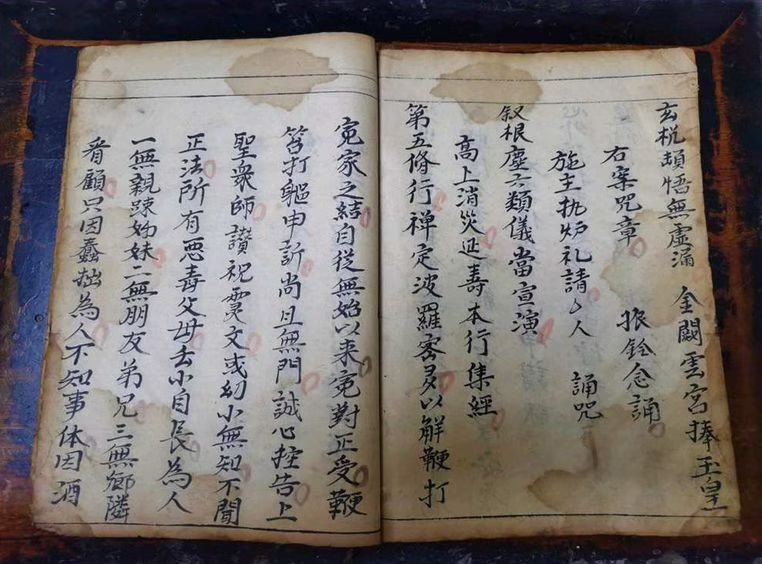 玄梲頡悟無虛漏　金闕雲宮捧玉皇
右案咒章　振鈴念誦
施主执炉礼請々人　誦咒
叙根塵六類儀當宣演
高上消災延壽本行集經
第五脩行禅定波羅密多以解鞭打
寃家之結自從無始以来寃對正受鞭
笞打軀申訴尚且無門誠心控告上
聖衆師讃祝霊文或幼小無知不聞
正法所有恶毒父母去小自長為人
一無親踈姊妹二無朋友弟兄三無鄉隣
看顧只因蠢拙為人不知事体因酒